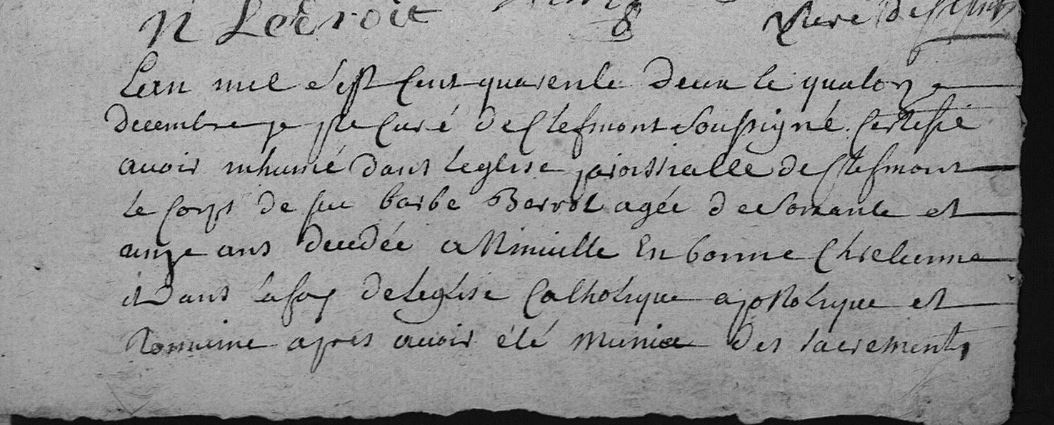 N Lecroit 8
Lan mil sept Cent quarente deux le quatorze
decembre je pstre Curé de Clefmont Soussigné Certifie
avoir inhumé dans leglise paroissialle de Clefmont
le Corps de feu barbe Berrot agée de soixante et
unze ans decedée a Niniville En bonne Chretienne
et Dans la foy de leglise Catholique apostolique et
Romaine apres avoir été munie des sacrements